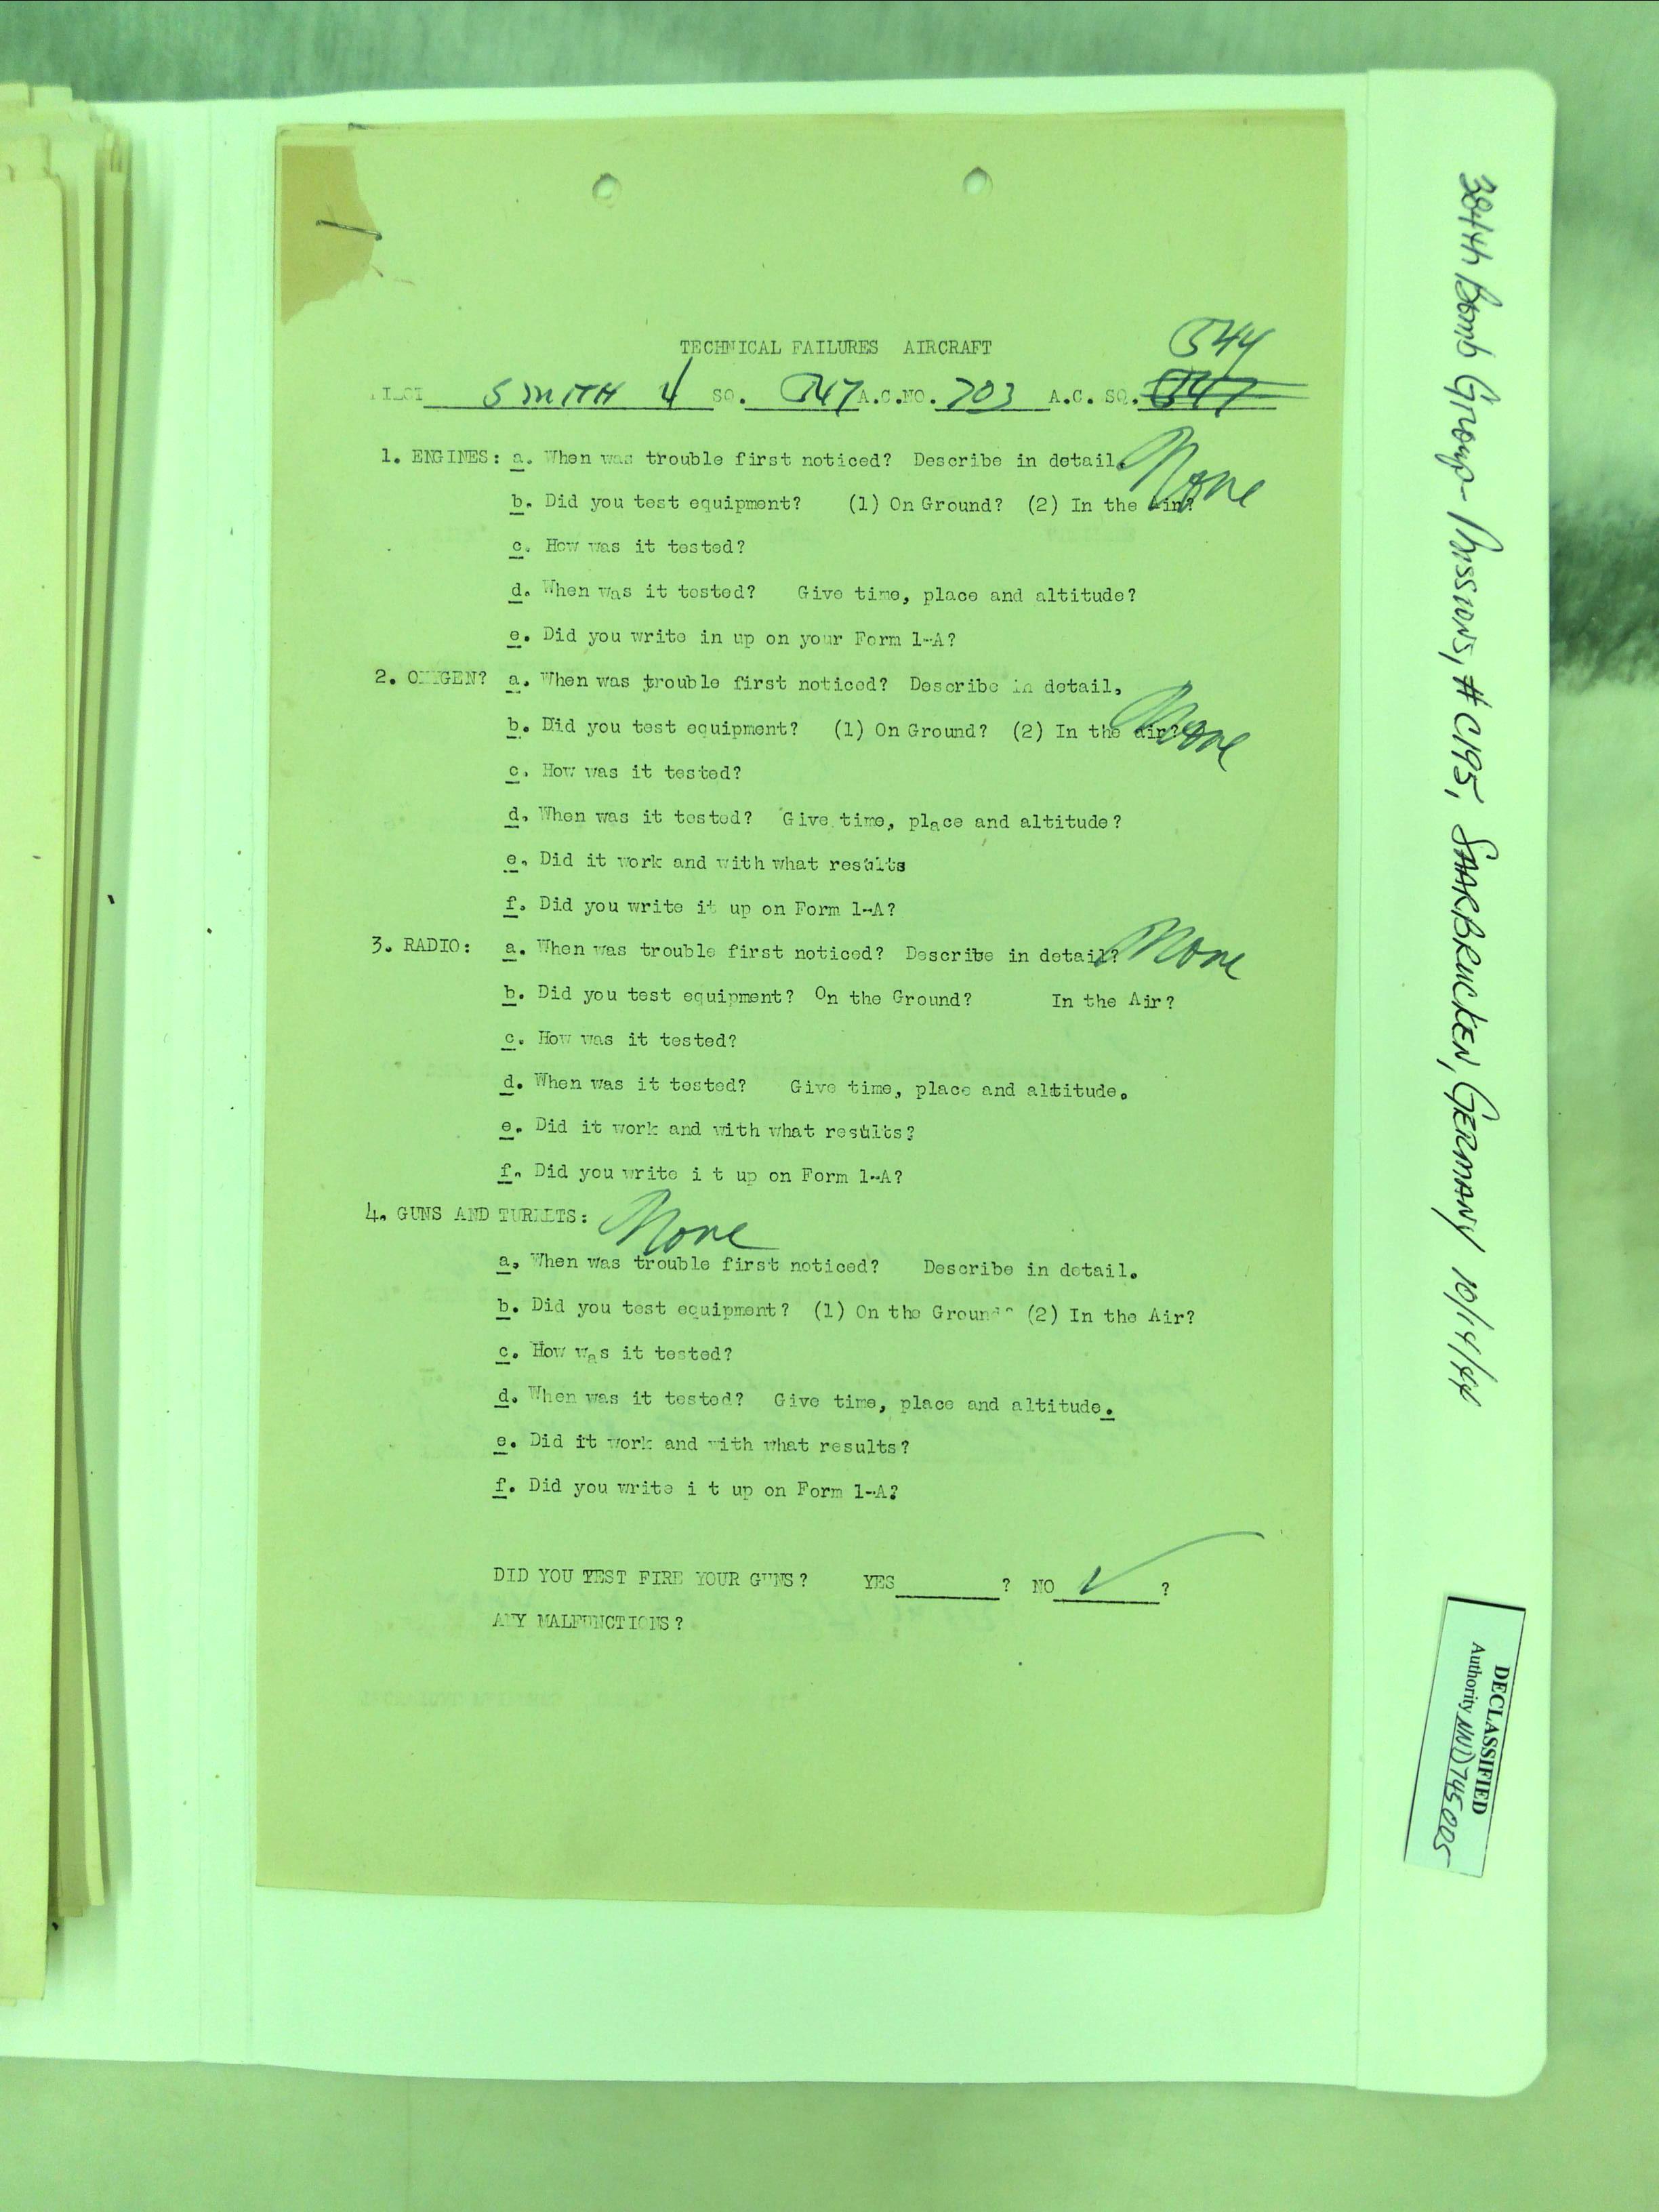 TECHNICAL FAILURES AIRCRAFT
544
PILOT SMITH SQ. 547 A.C.NO. 703 A.C. SQ. 547
1. ENGINES: a. When was trouble first noticed? Describe in detail. None
b. Did you test equipment? (1) On Ground? (2) In the Air?
c. How was it tested?
d. When was it tested? Give time, place and altitude?
e. Did you write in up on your Form 1-A?
2. OXYGEN? a. When was trouble first noticed? Describe in detail,
b. Did you test equipment? (1) On Ground? (2) In the air? None
c. How was it tested?
d. When was it tested? Give time, place and altitude?
e. Did it work and with what results
f. Did you write it up on Form 1-A?
3. RADIO: a. When was trouble first noticed? Describe in detail? None
b. Did you test equipment? On the Ground? In the Air?
c. How was it tested?
d. When was it tested? Give time, place and altitude.
e. Did it work and with what results?
f. Did you write i t up on Form 1-A?
4. GUNS AND TURRETS: None
a. When was trouble first noticed? Describe in detail.
b. Did you test equipment? (1) On the Ground? (2) In the Air?
c. How was it tested?
d. When was it tested? Give time, place and altitude.
e. Did it work and with what results?
f. Did you write i t up on Form 1-A?
DID YOU TEST FIRE YOUR GUNS? YES ? NO ✓ ?
ANY MALFUNCTIONS?
384th Bomb Group - Missions, # C195, SAARBRUCKEN, GERMANY 10/14/44
DECLASSIFIED
Authority NND745005